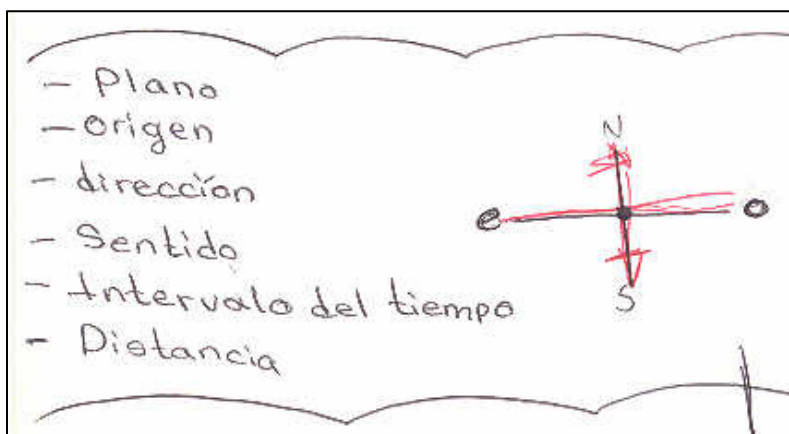 - Plano
- origen
- dirección
- Sentido
- Intervalo del tiempo
- Distancia
N
e
o
S